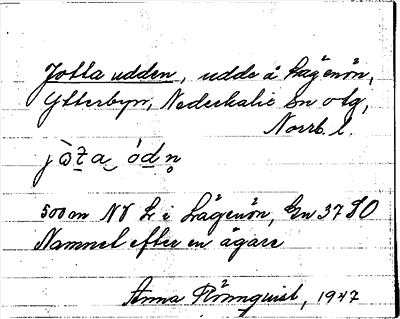 Jotta udden, udde å Lägenön,
Ytterbyn, Nederkalix sn otg,
Norrb. l.
500 m NV L i Lägenön, Gn 37 80
Namnet efter en ägare
Anna Rönnquist, 1947